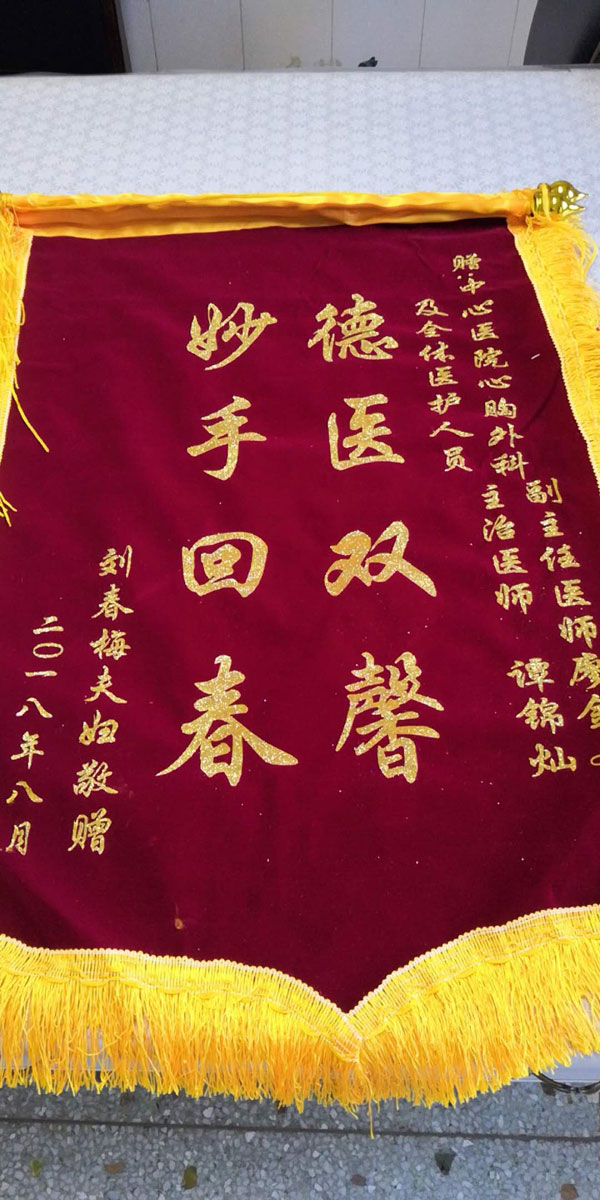 赠:中心医院心胸外科
副主任医师廖
主治医师 谭锦灿
及全体医护人员
德医双馨
妙手回春
刘春梅夫妇敬赠
二〇一八年八月